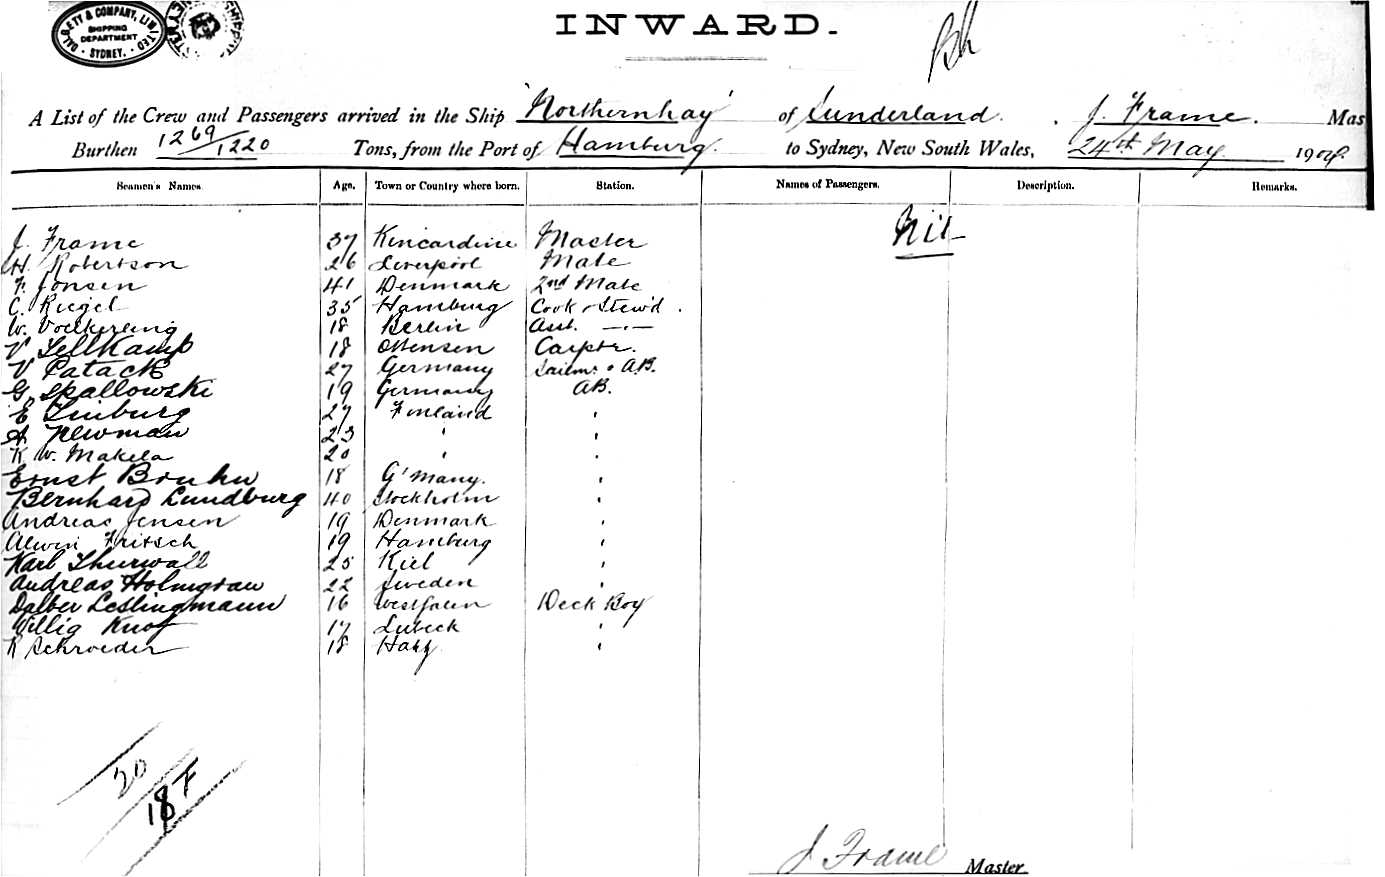 DALGETY & COMPANY, LIMITED
SHIPPING DEPARTMENT
SYDNEY.
INWARD.
A List of the Crew and Passengers arrived in the Ship "Northernhay" of Sunderland. J. Frame. Mas
Burthen 1269/1220 Tons, from the Port of Hamburg. to Sydney, New South Wales, 24th May 190
Seamen's Names. Age. Town or Country where born. Station. Names of Passengers. Description. Remarks.
Nil
J. Frame 37 Kincardine Master
H. Robertson 26 Liverpool Mate
F. Jonsen 41 Denmark 2nd Mate
C. Riegel 35 Hamburg Cook & Stew'd.
W. Voelkerling 18 Berlin Asst. —"—
V Sellkamp 18 Ottensen Carptr.
V Patack 27 Germany Sailmr. & A.B.
G. Spallowski 19 Germany AB.
E 27 Finland "
A. Newman 23 " "
K W. Makela 20 " "
Ernst Bruhn 18 G'many. "
Bernhard Lundburg 40 Stockholm "
Andreas Jensen 19 Denmark "
Alwin Fritsch 19 Hamburg "
Karl Thurwall 25 Kiel "
Andreas Holmgrau 22 Sweden "
Leslingmann 16 Westfalen Deck Boy
Willig Knof 17 Lubeck "
K Schroeder 18 "
20
18 F
J Frame Master